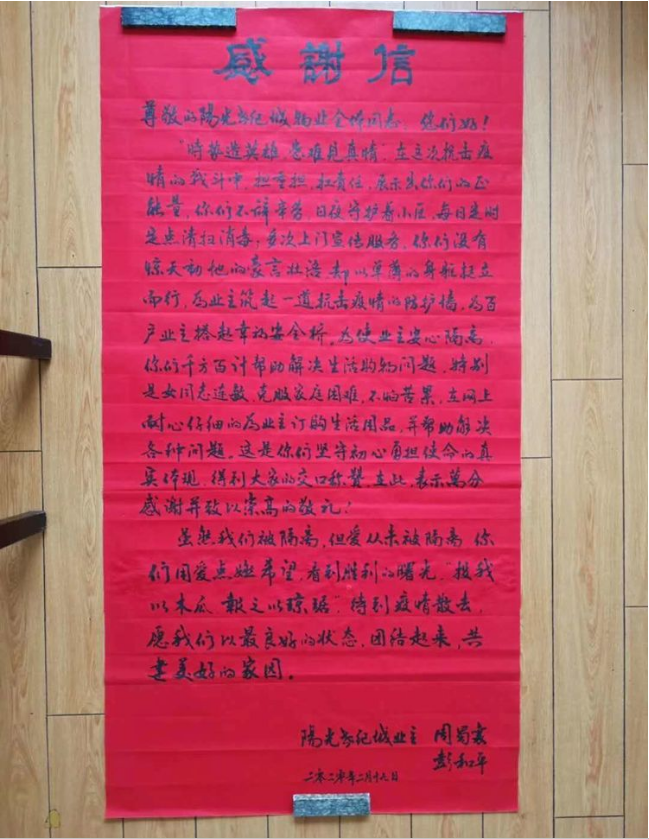 感謝信
尊敬的陽光世纪城物业全体同志：您们好！
"時势造英雄，患难見真情"，在这次抗击疫
情的战斗中，担重担，扛責任，展示出你们的正
能量，你们不辞辛劳，日夜守护着小区，每日定时
定点清扫消毒；多次上门宣传服务，你们没有
惊天动地的豪言壮语，却以单薄的身躯挺立
而行，為业主筑起一道抗击疫情的防护墙，為百
户业主搭起幸福安全桥，為使业主安心隔离，
你们千方百计帮助解决生活购物问题，特别
是女同志连敏，克服家庭困难，不怕苦累，在网上
耐心仔细的為业主订购生活用品，并帮助解决
各种问题。这是你们坚守初心勇担使命的真
实体现，得到大家的交口称赞，在此，表示萬分
感谢并致以崇高的敬礼！
虽然我们被隔离，但爱从未被隔离 你
们用爱点燃希望，看到胜利的曙光，"投我
以木瓜，報之以琼琚"，待到疫情散去，
愿我们以最良好的状态，团结起来，共
建美好的家园。
陽光世纪城业主 周蜀
彭和平
二零二零年二月十九日